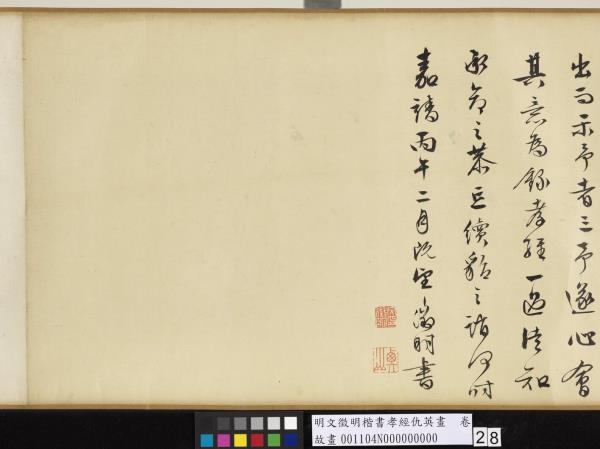 出而示予者三予遂心會
其意為錄孝經一過 知
承命之恭 續貂之誚
嘉靖丙午二月既望徵明書
明文徵明楷書孝經仇英畫 卷
故畫 001104N000000000
28